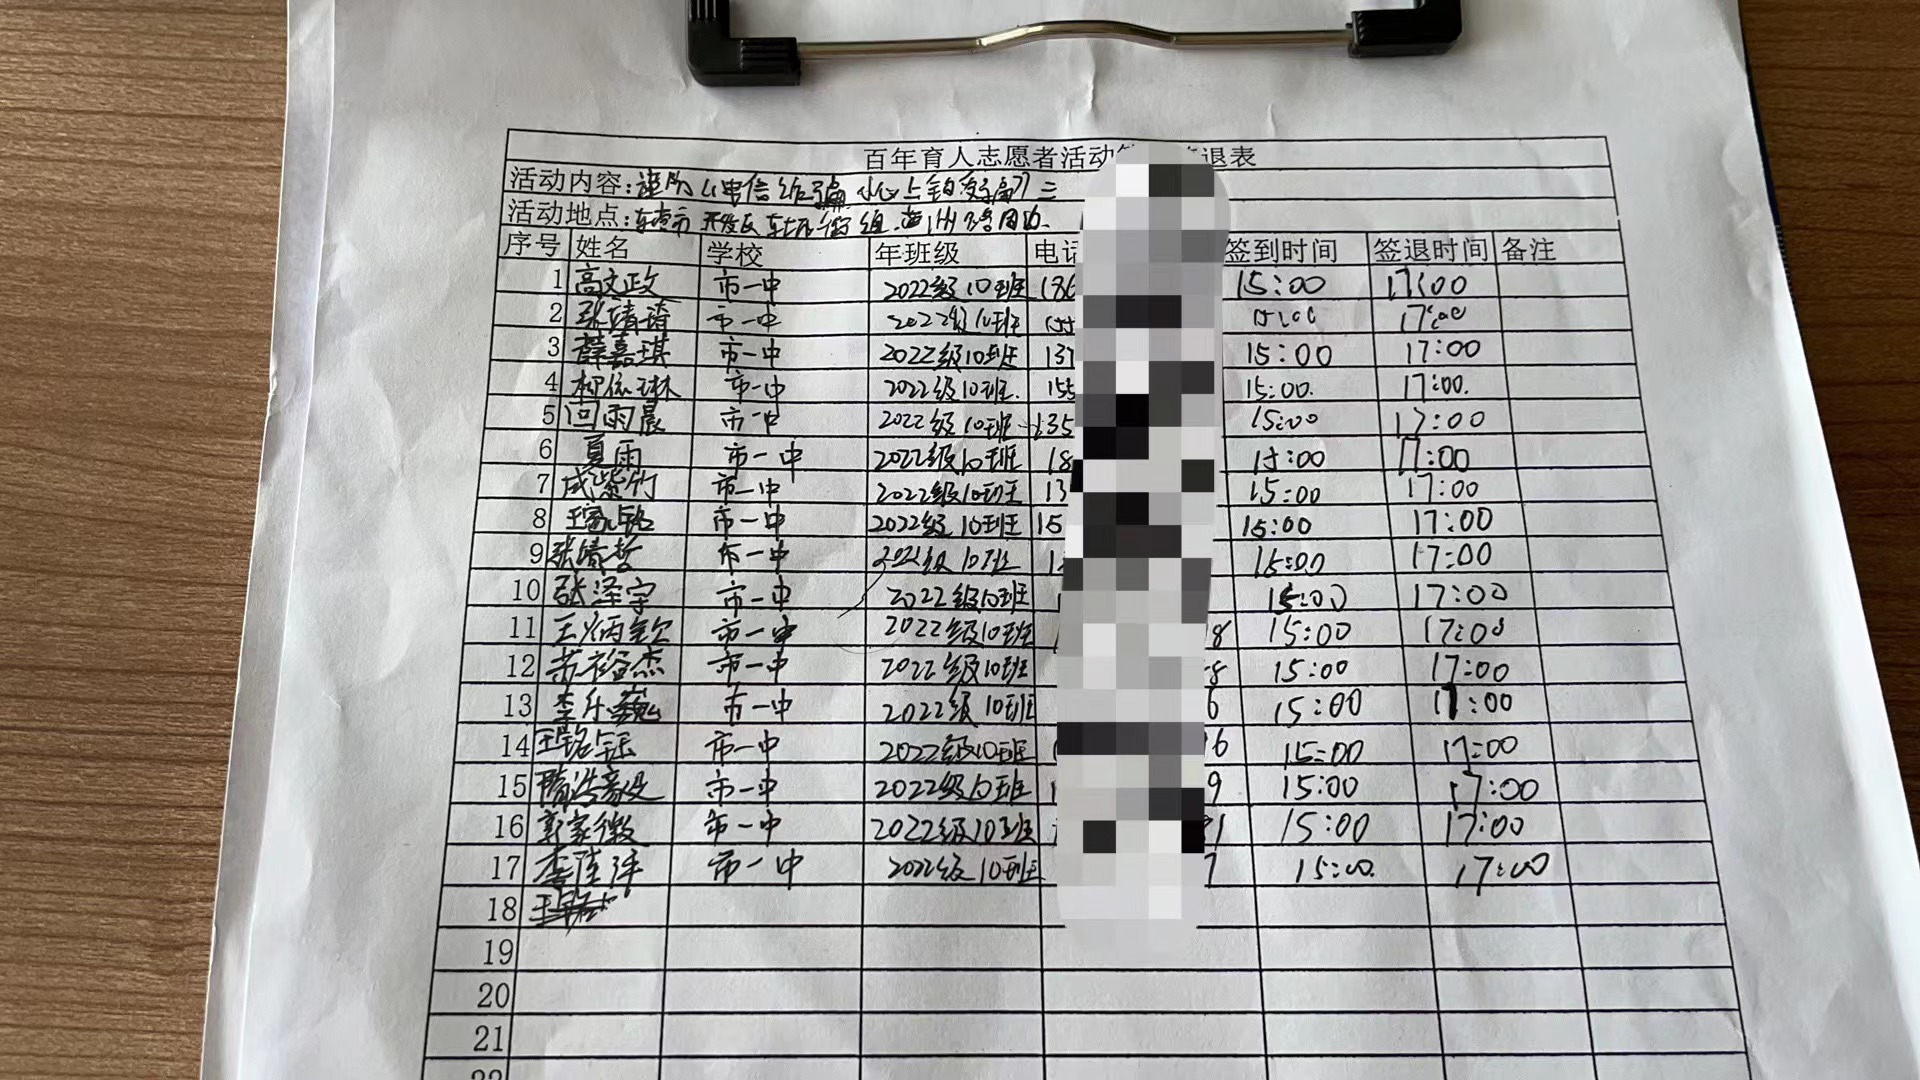 百年育人志愿者活动 退表
活动内容：谨防《电信诈骗 小心上钩受骗》
活动地点：东营市 开发区
序号 姓名 学校 年班级 电话 签到时间 签退时间 备注
1 高文政 市一中 2022级10班 186 15:00 17:00
2 张靖琦 市一中 2022级10班 155 15:00 17:00
3 薛嘉琪 市一中 2022级10班 137 15:00 17:00
4 柳依琳 市一中 2022级10班. 155 15:00. 17:00.
5 回雨晨 市一中 2022级10班 135 15:00 17:00
6 夏雨 市一中 2022级10班 18 15:00 17:00
7 成紫竹 市一中 2022级10班 13 15:00 17:00
8 王凯铭 市一中 2022级10班 15 15:00 17:00
9 张靖哲 市一中 2022级10班 1 15:00 17:00
10 张泽宇 市一中 2022级10班 15:00 17:00
11 王炳钦 市一中 2022级10班 8 15:00 17:00
12 苏裕杰 市一中 2022级10班 8 15:00 17:00
13 李千巍 市一中 2022级10班 6 15:00 17:00
14 王铭钰 市一中 2022级10班 6 15:00 17:00
15 隋浩毅 市一中 2022级10班 9 15:00 17:00
16 郭家徽 市一中 2022级10班 1 15:00 17:00
17 李佳泽 市一中 2022级10班 7 15:00. 17:00
18
19
20
21